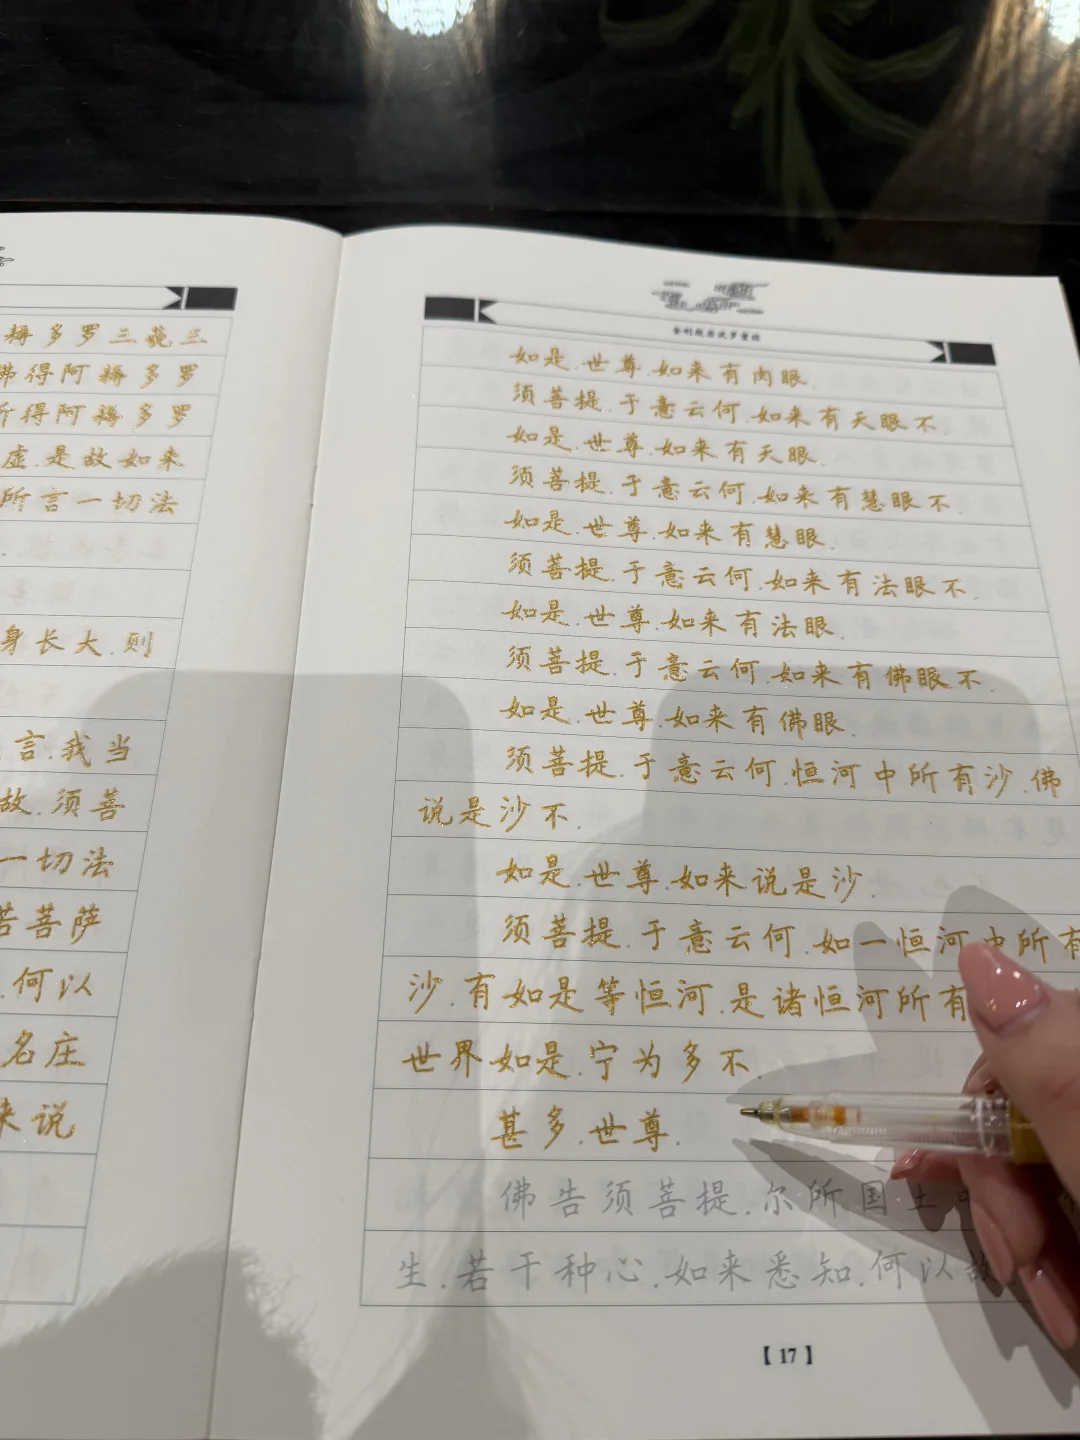 耨多罗三藐三
佛得阿耨多罗
所得阿耨多罗
虚.是故如来
所言一切法
身长大.则
言.我当
故.须菩
一切法
若菩萨
.何以
名庄
来说
金刚般若波罗蜜经
如是.世尊.如来有肉眼.
须菩提.于意云何.如来有天眼不.
如是.世尊.如来有天眼.
须菩提.于意云何.如来有慧眼不.
如是.世尊.如来有慧眼.
须菩提.于意云何.如来有法眼不.
如是.世尊.如来有法眼.
须菩提.于意云何.如来有佛眼不.
如是.世尊.如来有佛眼.
须菩提.于意云何.恒河中所有沙.佛
说是沙不.
如是.世尊.如来说是沙.
须菩提.于意云何.如一恒河中所有
沙.有如是等恒河.是诸恒河所有
世界如是.宁为多不.
甚多.世尊.
佛告须菩提.尔所国土中
生.若干种心.如来悉知.何以故.
【17】